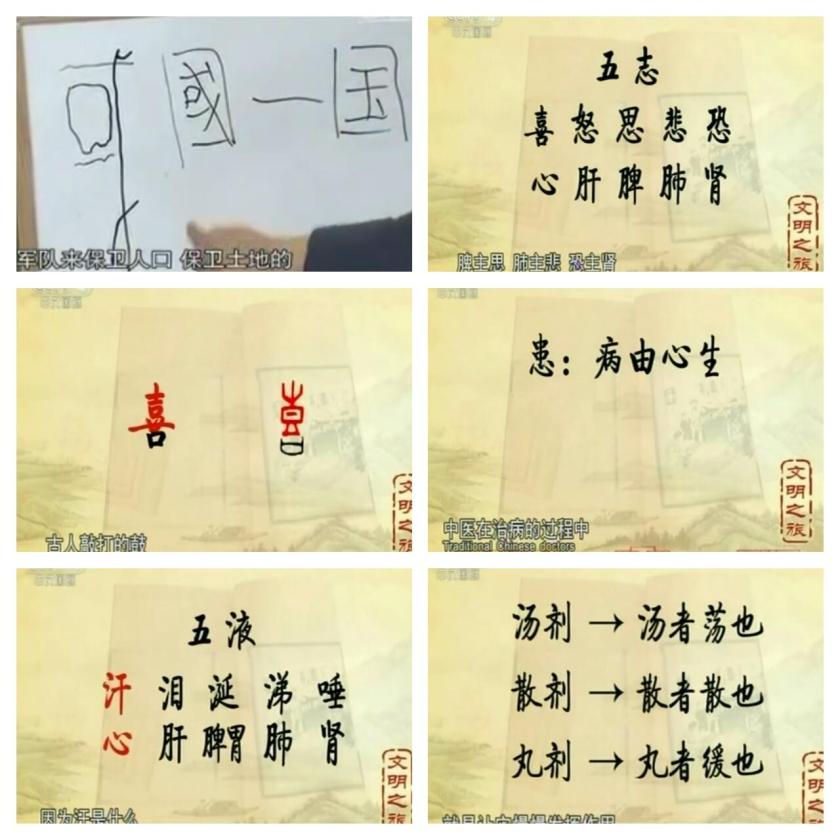 或 國 — 国
军队来保卫人口 保卫土地的
五志
喜 怒 思 悲 恐
心 肝 脾 肺 肾
文明之旅
脾主思 肺主悲 恐主肾
喜 喜
文明之旅
古人敲打的鼓
患：病由心生
文明之旅
中医在治病的过程中
Traditional Chinese doctors
五液
汗 泪 涎 涕 唾
心 肝 脾胃 肺 肾
文明之旅
因为汗是什么
汤剂 → 汤者荡也
散剂 → 散者散也
丸剂 → 丸者缓也
文明之旅